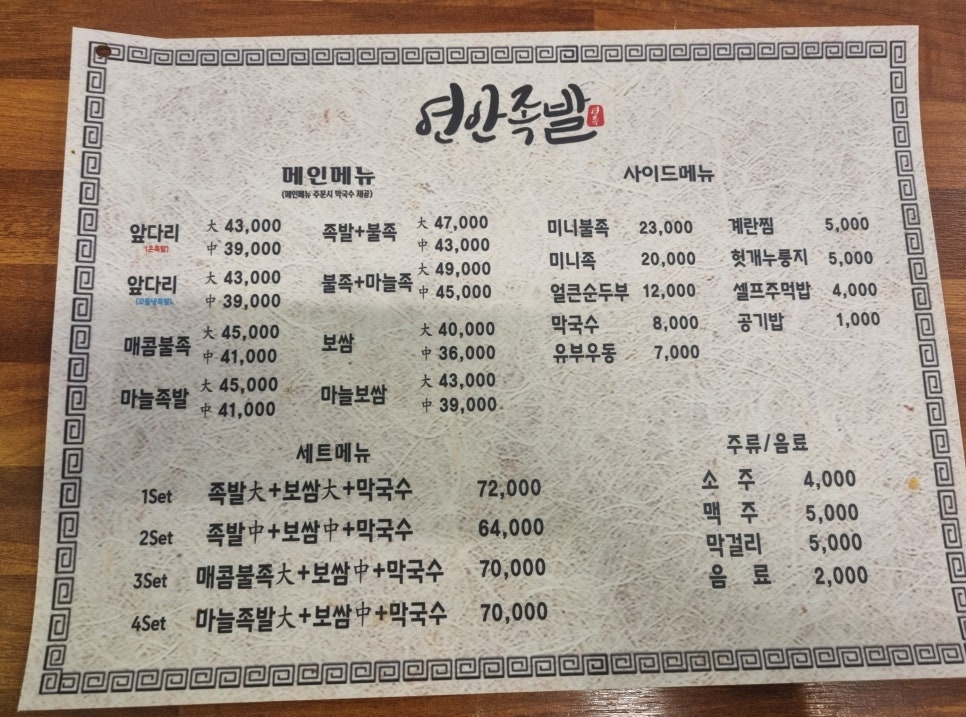 연안족발
메인메뉴
(메인메뉴 주문시 막국수 제공)
앞다리 大 43,000
(온족발) 中 39,000
앞다리 大 43,000
中 39,000
매콤불족 大 45,000
中 41,000
마늘족발 大 45,000
中 41,000
족발+불족 大 47,000
中 43,000
불족+마늘족 大 49,000
中 45,000
보쌈 大 40,000
中 36,000
마늘보쌈 大 43,000
中 39,000
사이드메뉴
미니불족 23,000
미니족 20,000
얼큰순두부 12,000
막국수 8,000
유부우동 7,000
계란찜 5,000
헛개누룽지 5,000
셀프주먹밥 4,000
공기밥 1,000
세트메뉴
1Set 족발大+보쌈大+막국수 72,000
2Set 족발中+보쌈中+막국수 64,000
3Set 매콤불족大+보쌈中+막국수 70,000
4Set 마늘족발大+보쌈中+막국수 70,000
주류/음료
소 주 4,000
맥 주 5,000
막걸리 5,000
음 료 2,000